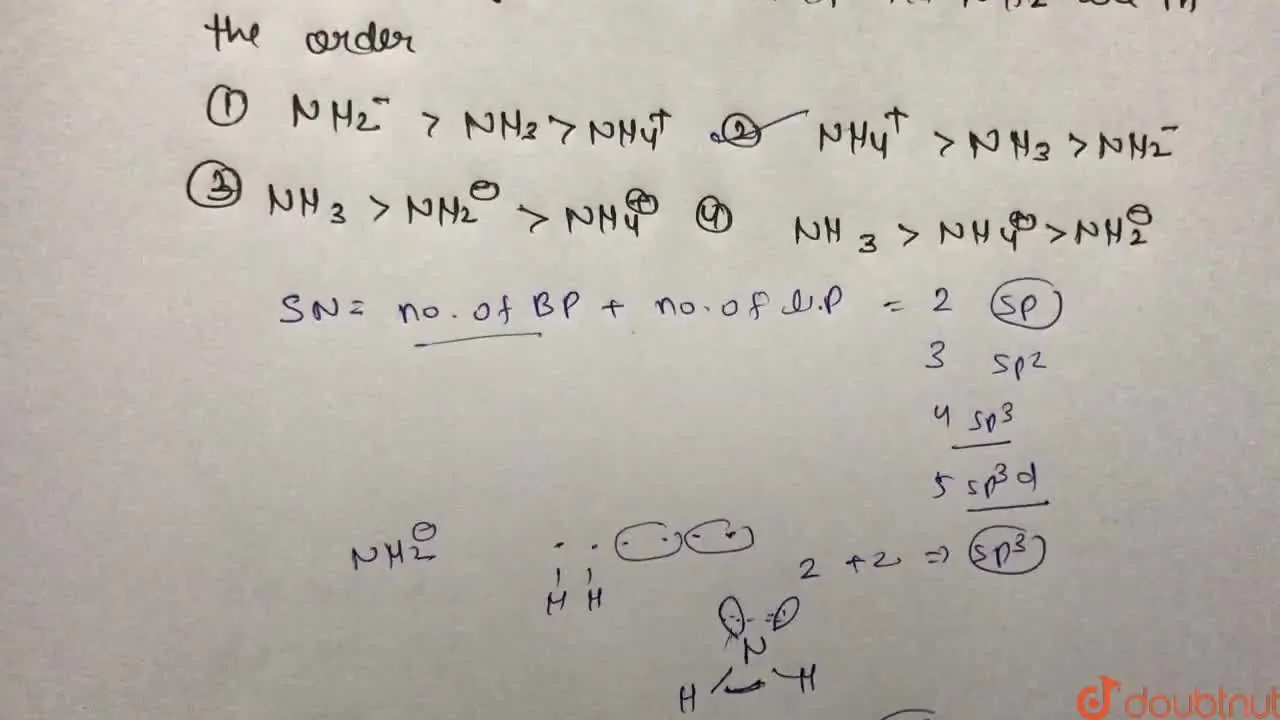 the order
① NH2⁻ > NH3 > NH4⁺ ② NH4⁺ > NH3 > NH2⁻
③ NH3 > NH2⊖ > NH4⊕ ④ NH3 > NH4⊕ > NH2⊖
SN = no. of BP + no. of l.p = 2 sp
3 sp2
4 sp3
5 sp3d
NH2⊖ 2 + 2 ⇒ sp3
H H
N
H H
doubtnut